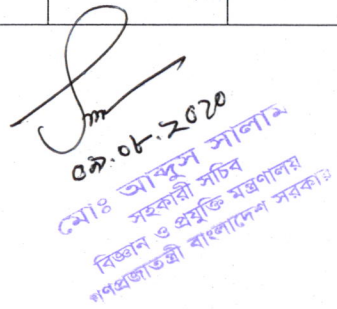 ০৯.০৮.২০২০
মোঃ আব্দুস সালাম
সহকারী সচিব
বিজ্ঞান ও প্রযুক্তি মন্ত্রণালয়
গণপ্রজাতন্ত্রী বাংলাদেশ সরকার